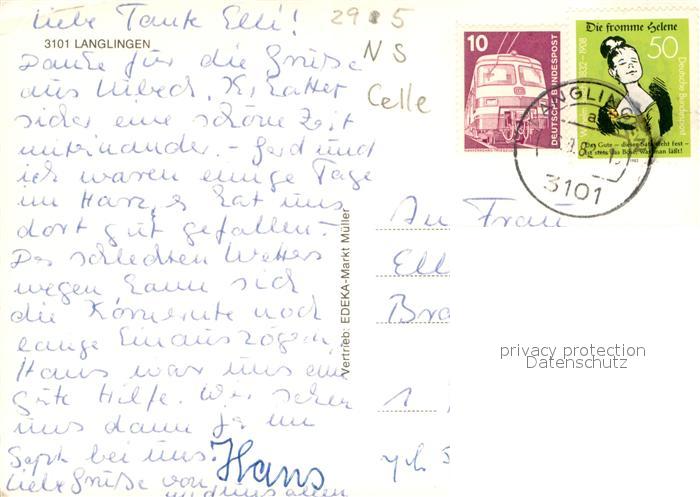 Liebe Tante Elli!
29 5
3101 LANGLINGEN
NS
Celle
Danke für die Grüße
aus Lübeck. Ihr hattet
sicher eine schöne Zeit
miteinander - Gerd und
ich waren einige Tage
im Harz, es hat uns
dort gut gefallen -
Des schlechten Wetters
wegen kann sich
die Kornernte noch
lange hinauszögern,
Hans war uns eine
gute Hilfe. Wir sehen
uns dann ja im
Sept. bei uns.
Liebe Grüße von
Hans
und uns allen
Vertrieb: EDEKA-Markt Müller
10
DEUTSCHE BUNDESPOST
Die fromme Helene
50
1832-1908
Deutsche Bundespost
Das Gute – dieser Satz steht fest –
ist stets das Böse, was man läßt!
3101
An Frau
Ell
Bra
1
privacy protection
Datenschutz